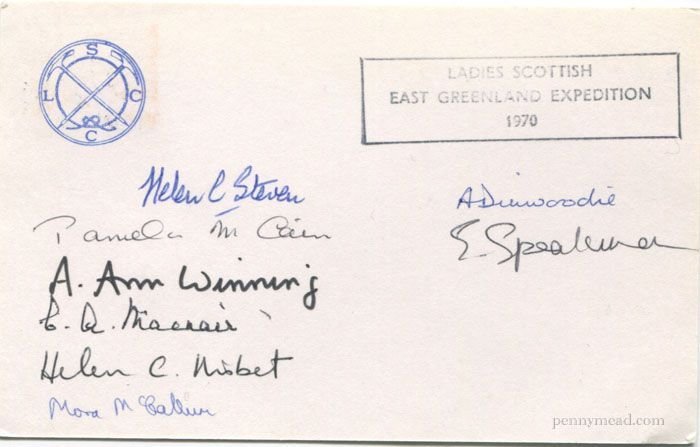 S
L C
C
LADIES SCOTTISH
EAST GREENLAND EXPEDITION
1970
Helen C Steven
Pamela M Cain
A. Ann Winning
Helen C. Nisbet
Mora McCallum
A Dinwoodie
E. Speakman
pennymead.com